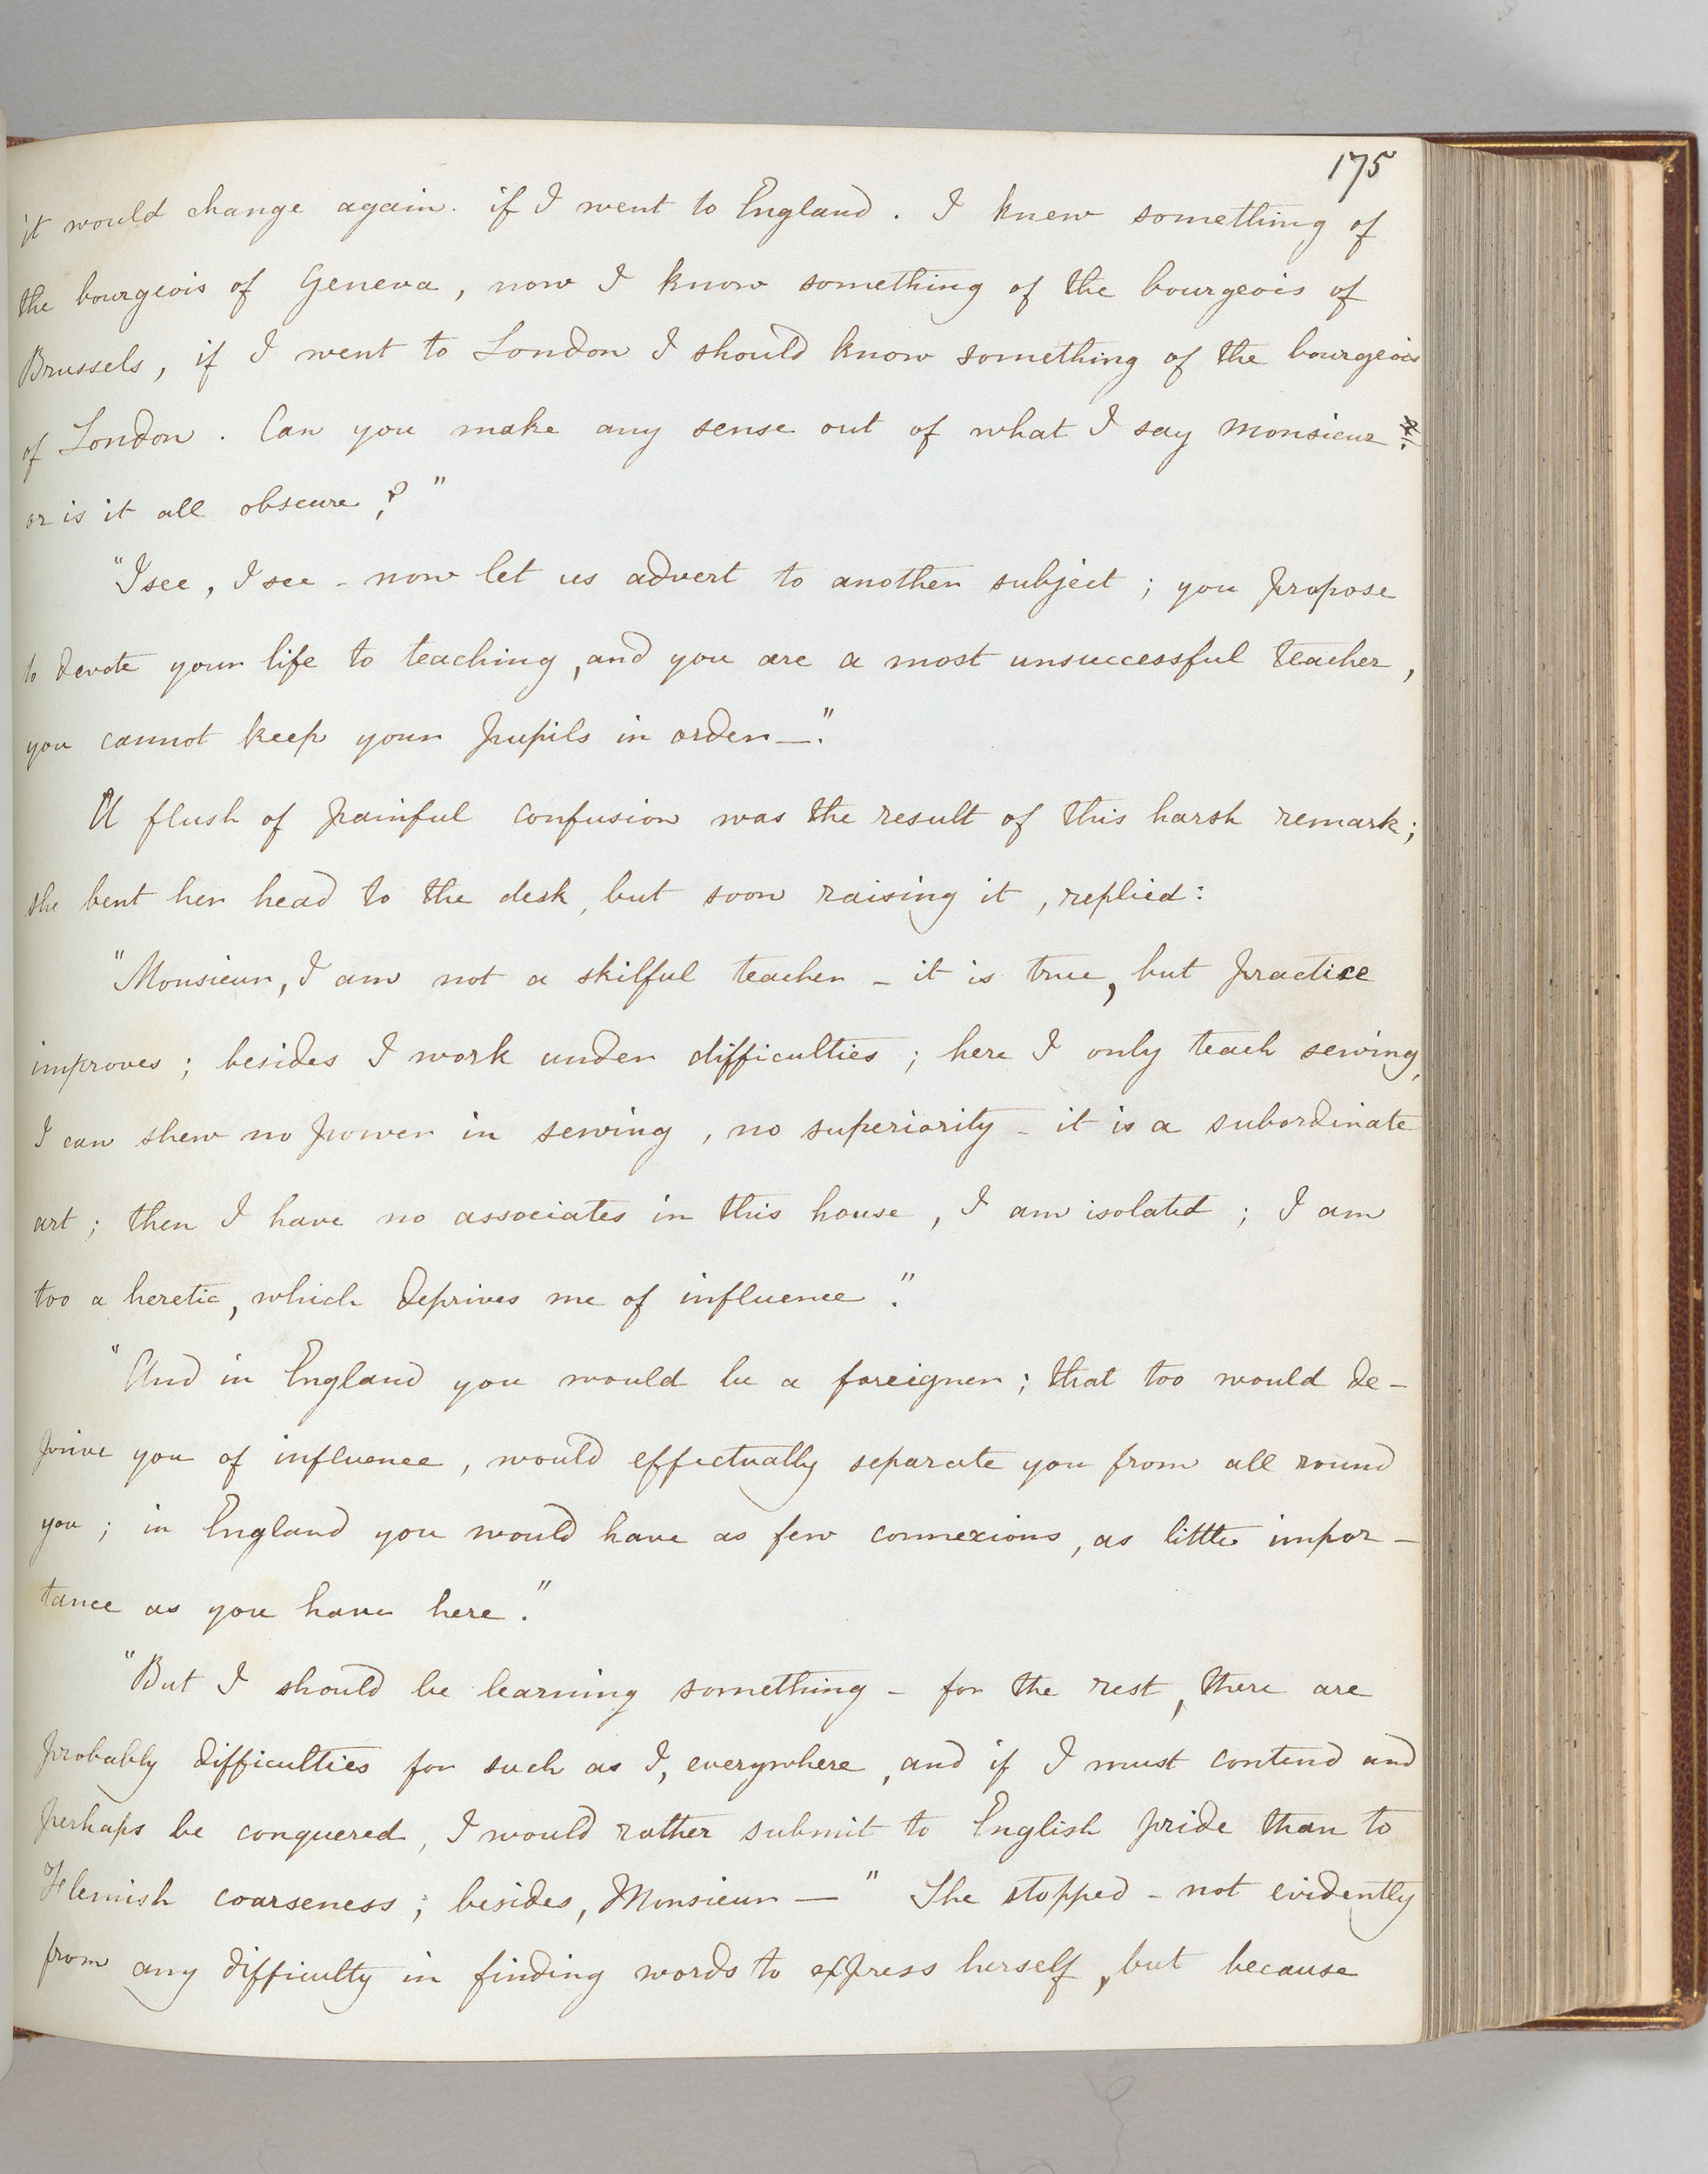 175
it would change again. if I went to England. I knew something of
the bourgeois of Geneva, now I know something of the bourgeois of
Brussels, if I went to London I should know something of the bourgeois
of London. Can you make any sense out of what I say Monsieur
or is it all obscure?"
"I see, I see - now let us advert to another subject; you propose
to devote your life to teaching, and you are a most unsuccessful teacher,
you cannot keep your pupils in order—."
A flush of painful confusion was the result of this harsh remark;
she bent her head to the desk, but soon raising it, replied:
"Monsieur, I am not a skilful teacher - it is true, but practice
improves; besides I work under difficulties; here I only teach sewing,
I can shew no power in sewing, no superiority - it is a subordinate
art; then I have no associates in this house, I am isolated; I am
too a heretic, which deprives me of influence."
"And in England you would be a foreigner; that too would de-
prive you of influence, would effectually separate you from all round
you; in England you would have as few connexions, as little impor-
tance as you have here."
"But I should be learning something - for the rest, there are
probably difficulties for such as I, everywhere, and if I must contend and
perhaps be conquered, I would rather submit to English pride than to
Flemish coarseness; besides, Monsieur —" She stopped - not evidently
from any difficulty in finding words to express herself, but because